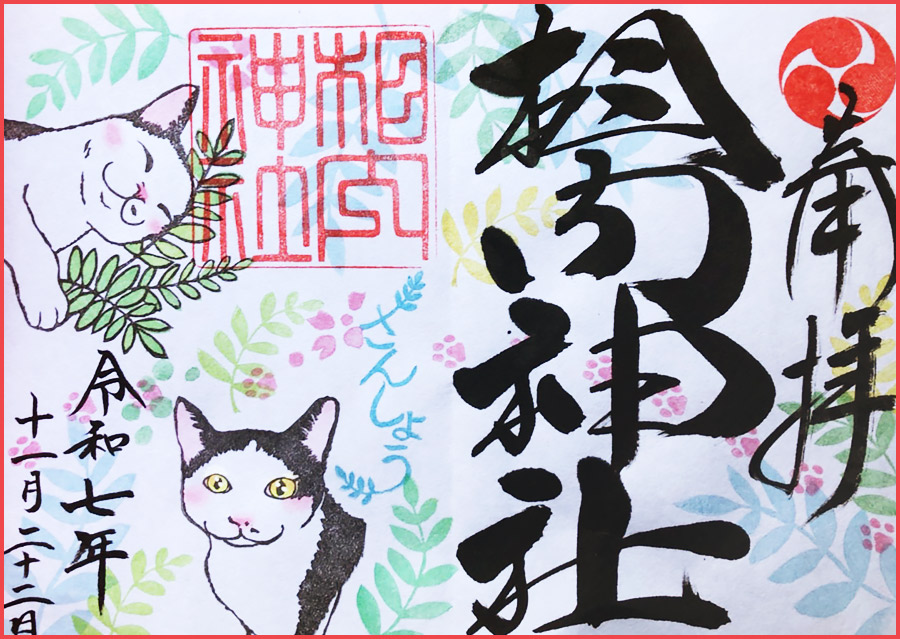 奉拝
相内神社
相内
神社
さんしょう
令和七年
十一月二十二日